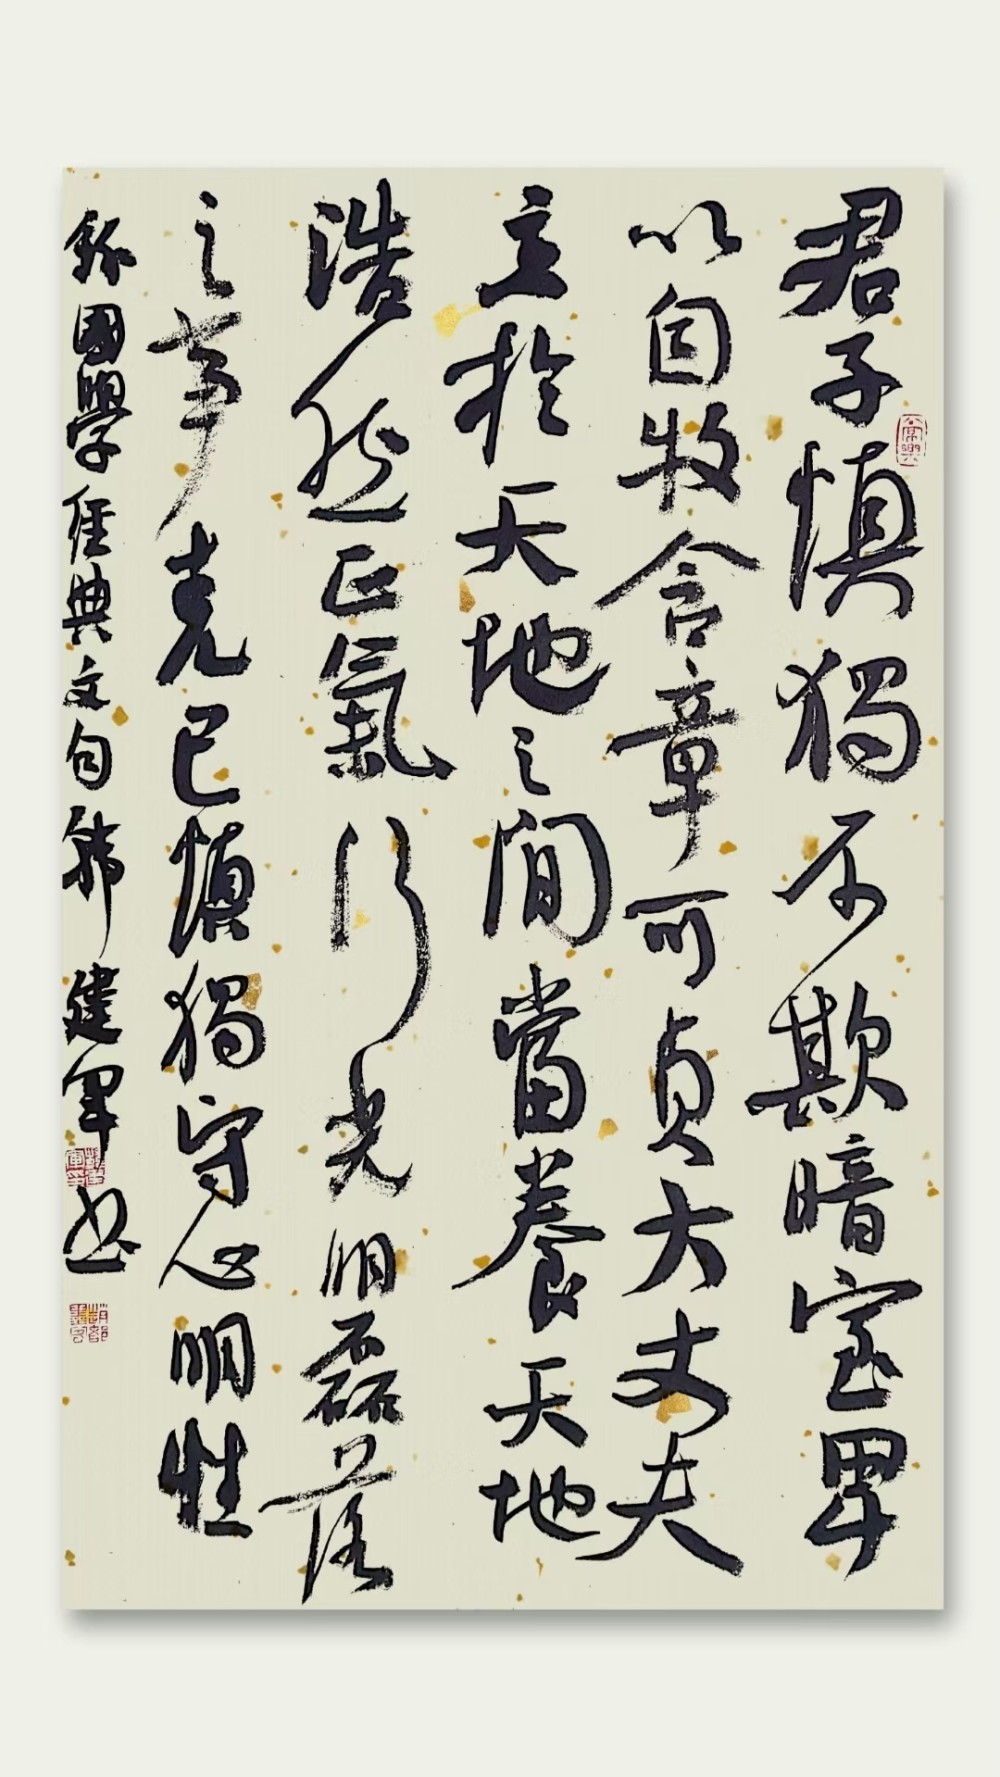 君子慎獨不欺暗室卑
以自牧含章可貞大丈夫
立於天地之間當養天地
浩然正氣行光明磊落
之事克己慎獨守心明性
錄國學經典文句韩建军书